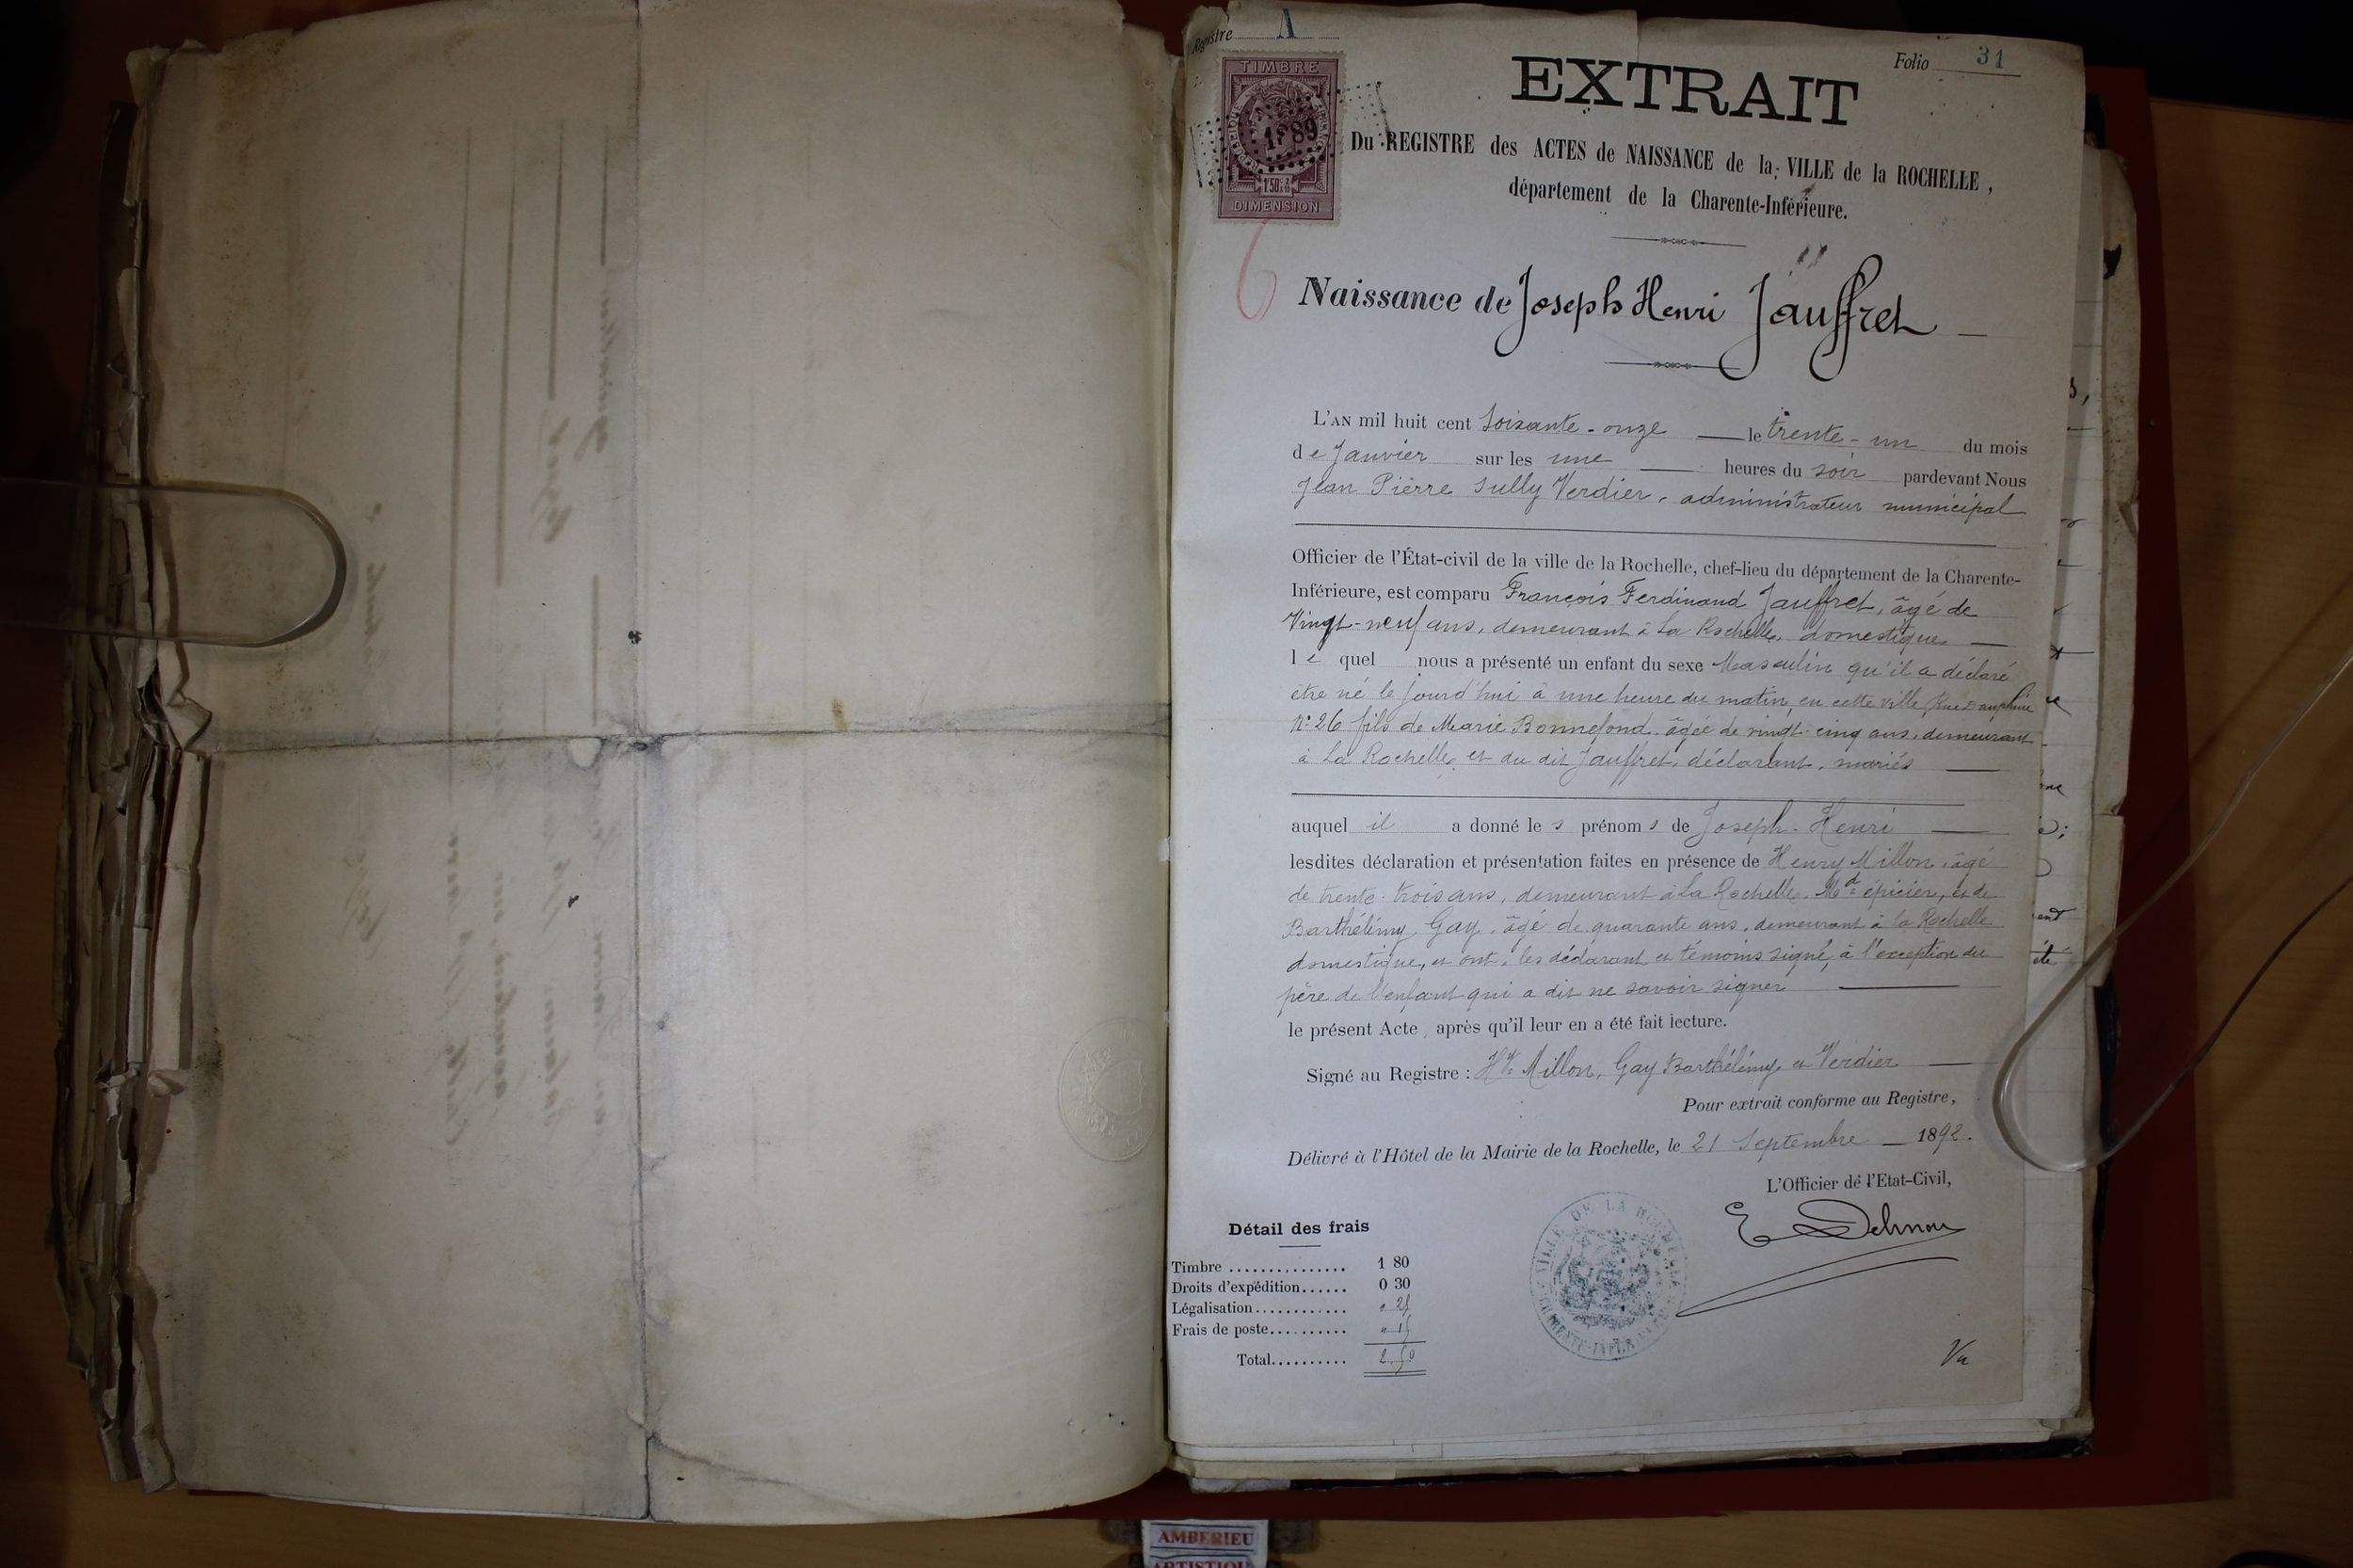 Registre A
Folio 31
TIMBRE
1F89
1F50c
DIMENSION
EXTRAIT
Du REGISTRE des ACTES de NAISSANCE de la VILLE de la ROCHELLE,
département de la Charente-Inférieure.
Naissance de Joseph Henri Jauffret
L'AN mil huit cent Soixante-onze le trente-un du mois
de Janvier sur les une heures du soir pardevant Nous
Jean Pierre Sully Verdier, administrateur municipal
Officier de l'État-civil de la ville de la Rochelle, chef-lieu du département de la Charente-
Inférieure, est comparu François Ferdinand Jauffret, âgé de
Vingt-neuf ans, demeurant à La Rochelle, domestique
le quel nous a présenté un enfant du sexe Masculin qu'il a déclaré
être né le jourd'hui à une heure du matin, en cette ville, Rue Dauphine
N° 26 fils de Marie Bonnefond, âgée de vingt-cinq ans, demeurant
à La Rochelle, et du dit Jauffret, déclarant, mariés
auquel il a donné les prénoms de Joseph-Henri
lesdites déclaration et présentation faites en présence de Henry Millon, âgé
de trente-trois ans, demeurant à La Rochelle, Md épicier, et de
Barthélémy Gay, âgé de quarante ans, demeurant à la Rochelle
domestique, et ont, les déclarant et témoins signé, à l'exception du
père de l'enfant qui a dit ne savoir signer
le présent Acte, après qu'il leur en a été fait lecture.
Signé au Registre : Hy Millon, Gay Barthélémy et Verdier
Pour extrait conforme au Registre,
Délivré à l'Hôtel de la Mairie de la Rochelle, le 21 Septembre 1892.
L'Officier de l'Etat-Civil,
E Delmon
VILLE DE LA ROCHELLE
CHARENTE-INFÉRIEURE
Détail des frais
Timbre ............... 1 80
Droits d'expédition...... 0 30
Légalisation............ " 25
Frais de poste.......... " 15
Total.......... 2.50
Vu
AMBERIEU
ARTISTIQU